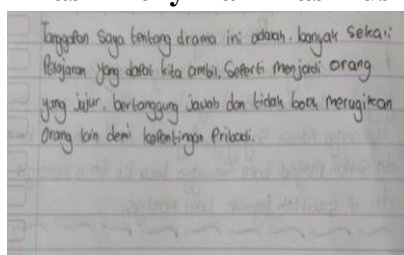 Tanggapan saya tentang drama ini adalah. banyak sekali
Pelajaran yang dapat kita ambil, Seperti menjadi orang
yang jujur, bertanggung jawab dan tidak boleh merugikan
Orang lain demi kepentingan Pribadi.